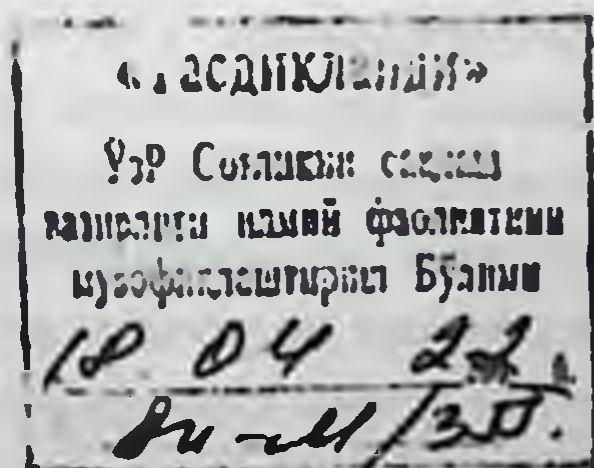 «ТАСДИКЛАНДИ»
ЎзР Соғлиқни сақлаш
вазирлиги илмий фаолиятни
мувофиқлаштириш Бўлими
18 04 22